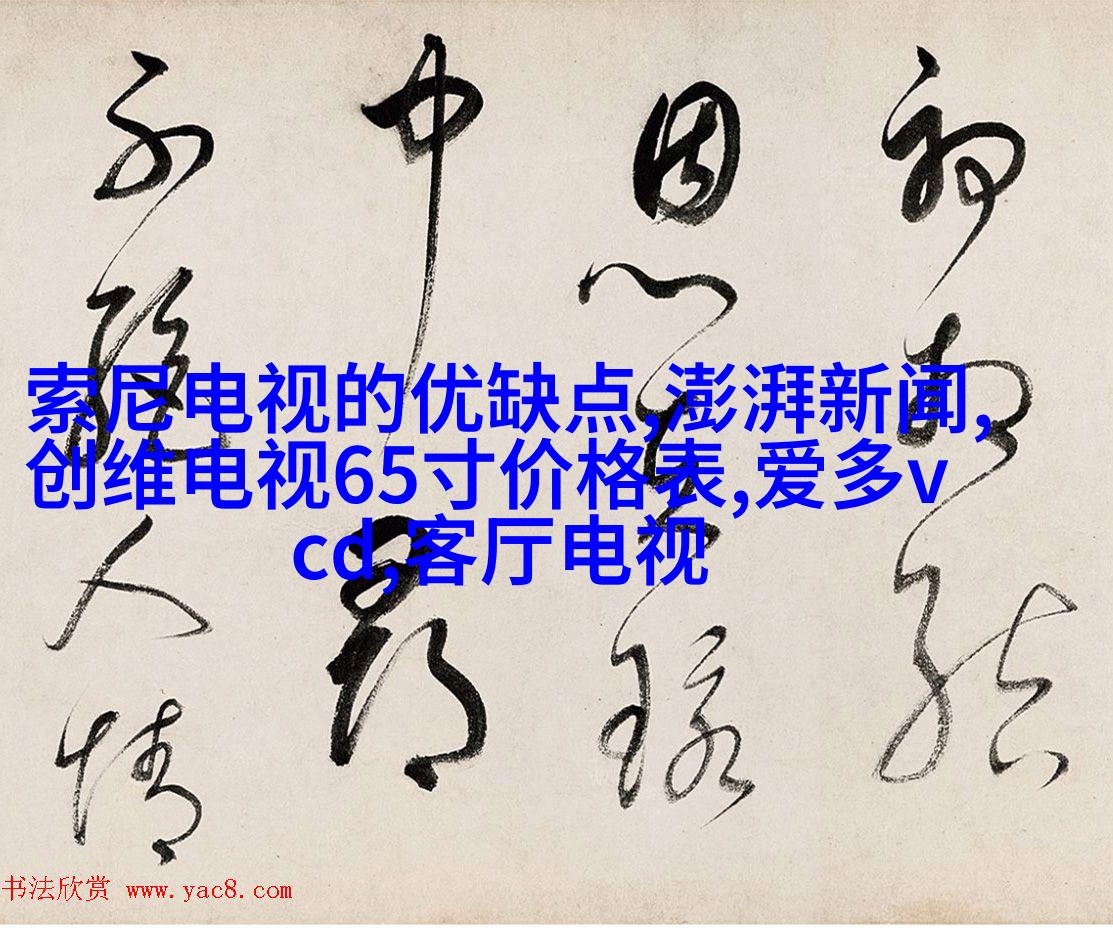 初相
恩
中
不人情
索尼电视的优缺点,澎湃新闻,
创维电视65寸价格表,爱多v
cd,客厅电视
书法欣赏 www.yac8.com